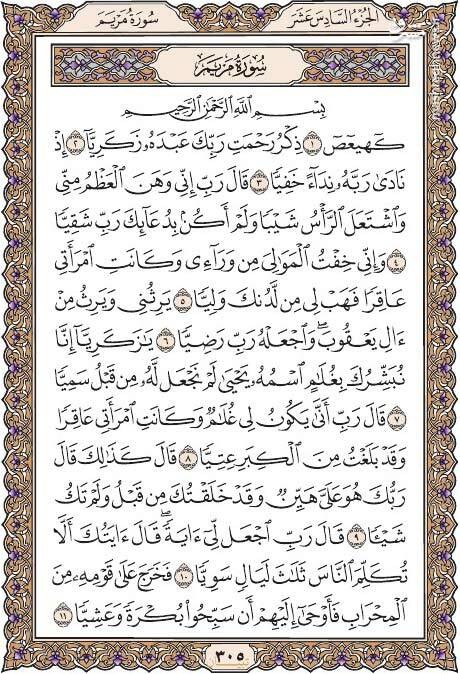 سُورَةُ مَرْيَمَ الجُزْءُ السَّادِسَ عَشَرَ
سُورَةُ مَرْيَمَ
بِسْمِ اللَّهِ الرَّحْمَٰنِ الرَّحِيمِ
كٓهيعٓصٓ ١ ذِكْرُ رَحْمَتِ رَبِّكَ عَبْدَهُۥ زَكَرِيَّآ ٢ إِذْ
نَادَىٰ رَبَّهُۥ نِدَآءً خَفِيًّا ٣ قَالَ رَبِّ إِنِّى وَهَنَ الْعَظْمُ مِنِّى
وَاشْتَعَلَ الرَّأْسُ شَيْبًا وَلَمْ أَكُنۢ بِدُعَآئِكَ رَبِّ شَقِيًّا
٤ وَإِنِّى خِفْتُ الْمَوَٰلِىَ مِن وَرَآءِى وَكَانَتِ امْرَأَتِى
عَاقِرًا فَهَبْ لِى مِن لَّدُنكَ وَلِيًّا ٥ يَرِثُنِى وَيَرِثُ مِنْ
ءَالِ يَعْقُوبَ ۖ وَاجْعَلْهُ رَبِّ رَضِيًّا ٦ يَٰزَكَرِيَّآ إِنَّا
نُبَشِّرُكَ بِغُلَٰمٍ اسْمُهُۥ يَحْيَىٰ لَمْ نَجْعَل لَّهُۥ مِن قَبْلُ سَمِيًّا
٧ قَالَ رَبِّ أَنَّىٰ يَكُونُ لِى غُلَٰمٌ وَكَانَتِ امْرَأَتِى عَاقِرًا
وَقَدْ بَلَغْتُ مِنَ الْكِبَرِ عِتِيًّا ٨ قَالَ كَذَٰلِكَ قَالَ
رَبُّكَ هُوَ عَلَىَّ هَيِّنٌ وَقَدْ خَلَقْتُكَ مِن قَبْلُ وَلَمْ تَكُ
شَيْـًٔا ٩ قَالَ رَبِّ اجْعَل لِّىٓ ءَايَةً ۚ قَالَ ءَايَتُكَ أَلَّا
تُكَلِّمَ النَّاسَ ثَلَٰثَ لَيَالٍ سَوِيًّا ١٠ فَخَرَجَ عَلَىٰ قَوْمِهِۦ مِنَ
الْمِحْرَابِ فَأَوْحَىٰٓ إِلَيْهِمْ أَن سَبِّحُوا۟ بُكْرَةً وَعَشِيًّا ١١
٣٠٥